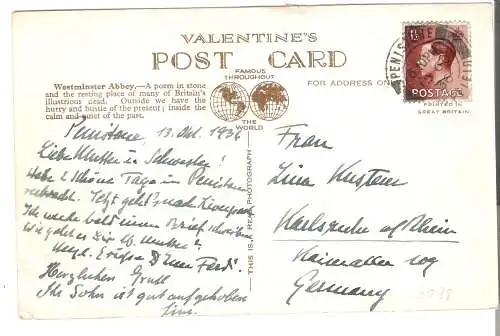 VALENTINE'S
POST CARD
FAMOUS
THROUGHOUT
THE
WORLD
FOR ADDRESS ON
Westminster Abbey.—A poem in stone
and the resting place of many of Britain's
illustrious dead. Outside we have the
hurry and bustle of the present; inside the
calm and quiet of the past.
THIS IS A REAL PHOTOGRAPH
PENISTONE
POSTAGE
PRINTED IN
GREAT BRITAIN
Penistone, 13. Okt. 1936
Liebe Mutter u. Schwester!
Habe 2 schöne Tage in Penistone
verbracht. Jetzt geht's nach
Ich werde bald einen Brief schreiben
wie geht es Dir lb. Mutter?
Herzl. Grüsse Euer Ferd
Herzlichen Gruß
Ihr Sohn ist gut aufgehoben
Frau
Lina
Karlsruhe a/Rhein
Kaiserallee 109
Germany